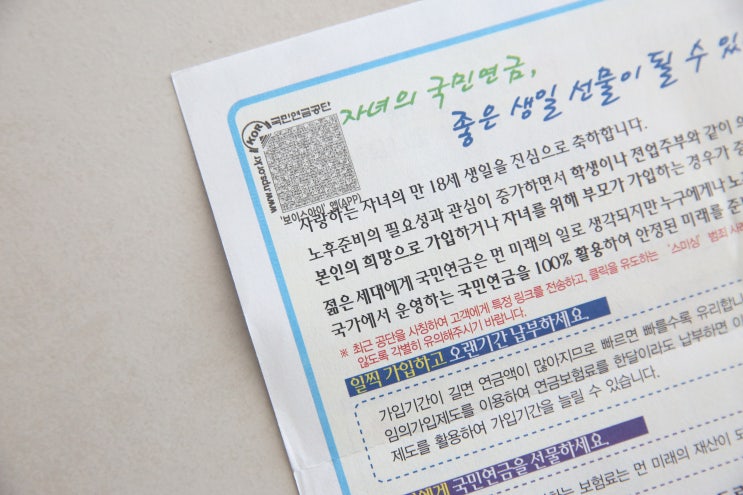 자녀의 국민연금,
좋은 생일 선물이 될 수 있
KOR 국민연금공단
www.nps.or.kr
'보이스아이' 앱(APP)
사랑하는 자녀의 만 18세 생일을 진심으로 축하합니다.
노후준비의 필요성과 관심이 증가하면서 학생이나 전업주부와 같이 의
본인의 희망으로 가입하거나 자녀를 위해 부모가 가입하는 경우가 증
젊은 세대에게 국민연금은 먼 미래의 일로 생각되지만 누구에게나 노
국가에서 운영하는 국민연금을 100% 활용하여 안정된 미래를 준
※ 최근 공단을 사칭하여 고객에게 특정 링크를 전송하고, 클릭을 유도하는 '스미싱' 범죄 사례
않도록 각별히 유의해주시기 바랍니다.
일찍 가입하고 오랜기간 납부하세요.
가입기간이 길면 연금액이 많아지므로 빠르면 빠를수록 유리합니
임의가입제도를 이용하여 연금보험료를 한달이라도 납부하면 이
제도를 활용하여 가입기간을 늘릴 수 있습니다.
에게 국민연금을 선물하세요.
하는 보험료는 먼 미래의 재산이 되